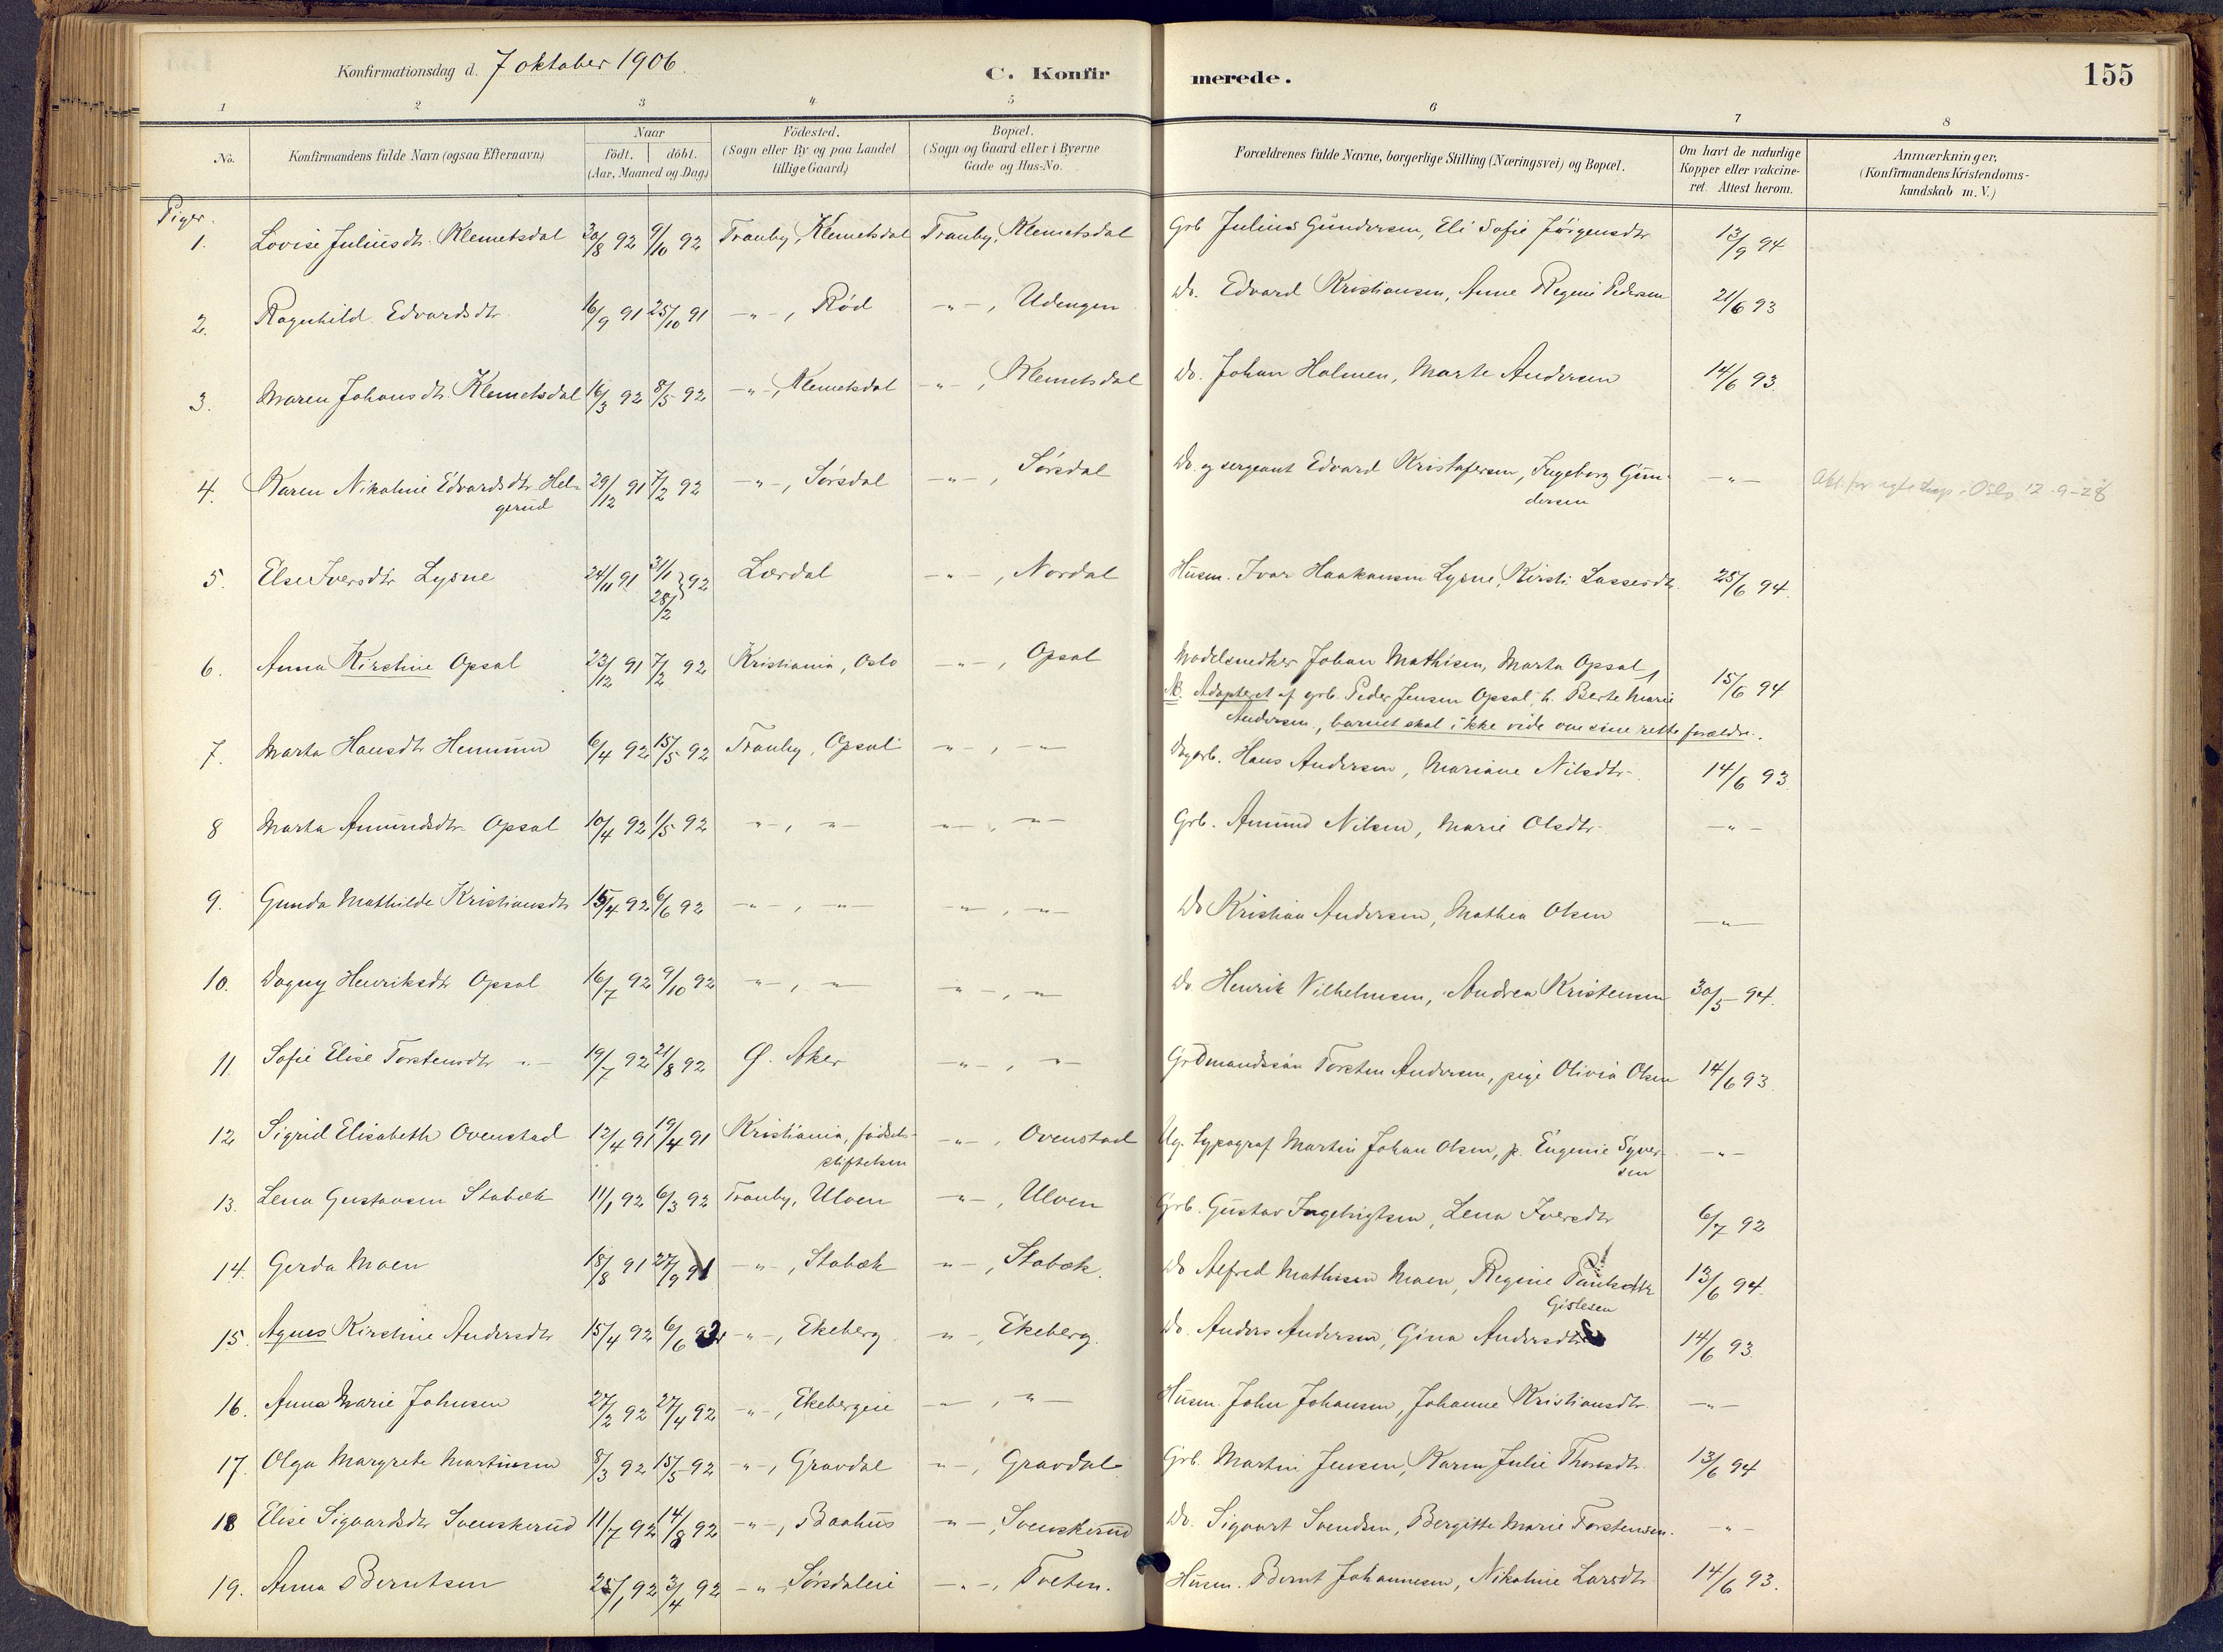 Konfirmationsdag d. 7 oktober 1906.
C. Konfirmerede.
155
1 2 3 4 5 6 7 8
No.
Konfirmandens fulde Navn (ogsaa Efternavn)
Naar
födt. döbt.
(Aar, Maaned og Dag)
Födested.
(Sogn eller By og paa Landet
tillige Gaard)
Bopæl.
(Sogn og Gaard eller i Byerne
Gade og Hus-No.
Forældrenes fulde Navne, borgerlige Stilling (Næringsvei) og Bopæl.
Om havt de naturlige
Kopper eller vakcine-
ret. Attest herom.
Anmærkninger,
(Konfirmandens Kristendoms-
kundskab m. V.)
Piger.
1. Lovise Juliusdtr. Klemetsdal 30/8 92 9/10 92 Tranby, Klemetsdal Tranby, Klemetsdal Grb Julius Gundersen, Eli Sofie Jörgensdtr 13/9 94
2. Ragnhild Edvardsdtr 16/9 91 25/10 91 -"-, Röd -"-, Udengen Do. Edvard Kristiansen, Anne Regine Pedersen 21/6 93
3. Maren Johansdtr. Klemetsdal 16/3 92 8/5 92 -"-, Klemetsdal -"-, Klemetsdal Do. Johan Halmen, Marte Andersen 14/6 93.
4. Karen Nikoline Edvardsdtr. Hel- 29/12 91 7/2 92 -"-, Sörsdal -"-, Sörsdal Do. og sergeant Edvard Kristofersen, Ingeborg Gun- -"- Oslo 12-9-28
gerud dersen
5. Else Iversdtr Lysne 24/11 91 31/1 28/2 } 92 Lærdal -"-, Nordal Husm. Ivar Haakansen Lysne, Kirsti Lassesdtr. 25/6 94.
6. Anna Kirstine Opsal 23/12 91 7/2 92 Kristiania, Oslo -"-, Opsal Modelsnedker Johan Mathisen, Marta Opsal, 15/6 94
NB. Adopteret af grb. Peder Jensen Opsal, h. Berte Marie
Andersen, barnet skal ikke vide om sine rette forældre.
7. Marta Hansdtr Hennum 6/4 92 15/5 92 Tranby, Opsal -"-, -"- Dagarb. Hans Andersen, Mariane Nilsdtr. 14/6 93
8 Marta Amundsdtr. Opsal 10/4 92 1/5 92 -"-, -"- -"-, -"- Grb. Amund Nilsen, Marie Olsdtr. -"-
9. Gunda Mathilde Kristiansdtr 15/4 92 6/6 92 -"-, -"- -"-, -"- Do Kristian Andersen, Mathea Olsen -"-
10. Dagny Henriksdtr Opsal 16/7 92 9/10 92 -"-, -"- -"-, -"- Do. Henrik Vilhelmsen, Andrea Kristensen 30/5 94.
11. Sofie Elise Torstensdtr -"- 19/7 92 21/8 92 Ø. Aker -"-, -"- Grdmandssön Torsten Andersen, pige Olivia Olsen 14/6 93.
12 Sigrid Elisabeth Ovenstad 12/4 91 19/4 91 Kristiania, födsels- -"-, Ovenstad Ug. Typograf Martin Johan Olsen, p. Eugenie Syver- -"-
stiftelsen sen
13. Lena Gustavsen Stabæk 11/1 92 6/3 92 Tranby, Ulven -"-, Ulven Grb. Gustav Ingebrigtsen, Lena Iversdtr 6/7 92
14. Gerda Moen 18/8 91 27/9 91 -"-, Stabæk -"-, Stabæk. Do Alfred Mathisen Moen, Regine Paulsdtr 13/6 94.
Gislesen
15. Agnes Kirstine Andersdtr 15/4 92 6/6 92 -"-, Ekeberg -"-, Ekeberg. Do. Anders Andersen, Gina Andersdtr 14/6 93
16. Anna Marie Johnsen 27/2 92 27/4 92 -"-, Ekebergeie -"-, -"- Husm. John Johansen, Johanne Kristiansdtr. -"-
17. Olga Margrete Martinsen 8/3 92 15/5 92 -"-, Gravdal -"-, Gravdal Grb. Martin Jensen, Karen Julie Thoresdtr. 13/6 94
18 Elise Sigvardsdtr Svenskerud 11/7 92 14/8 92 -"-, Baahus -"-, Svenskerud Do. Sigvart Svendsen, Bergitte Marie Torstensen. -"-
19. Anna Berntsen 25/1 92 3/4 92 -"-, Sörsdaleie -"-, Tveten. Husm. Bernt Johannesen, Nikoline Larsdtr 14/6 93.